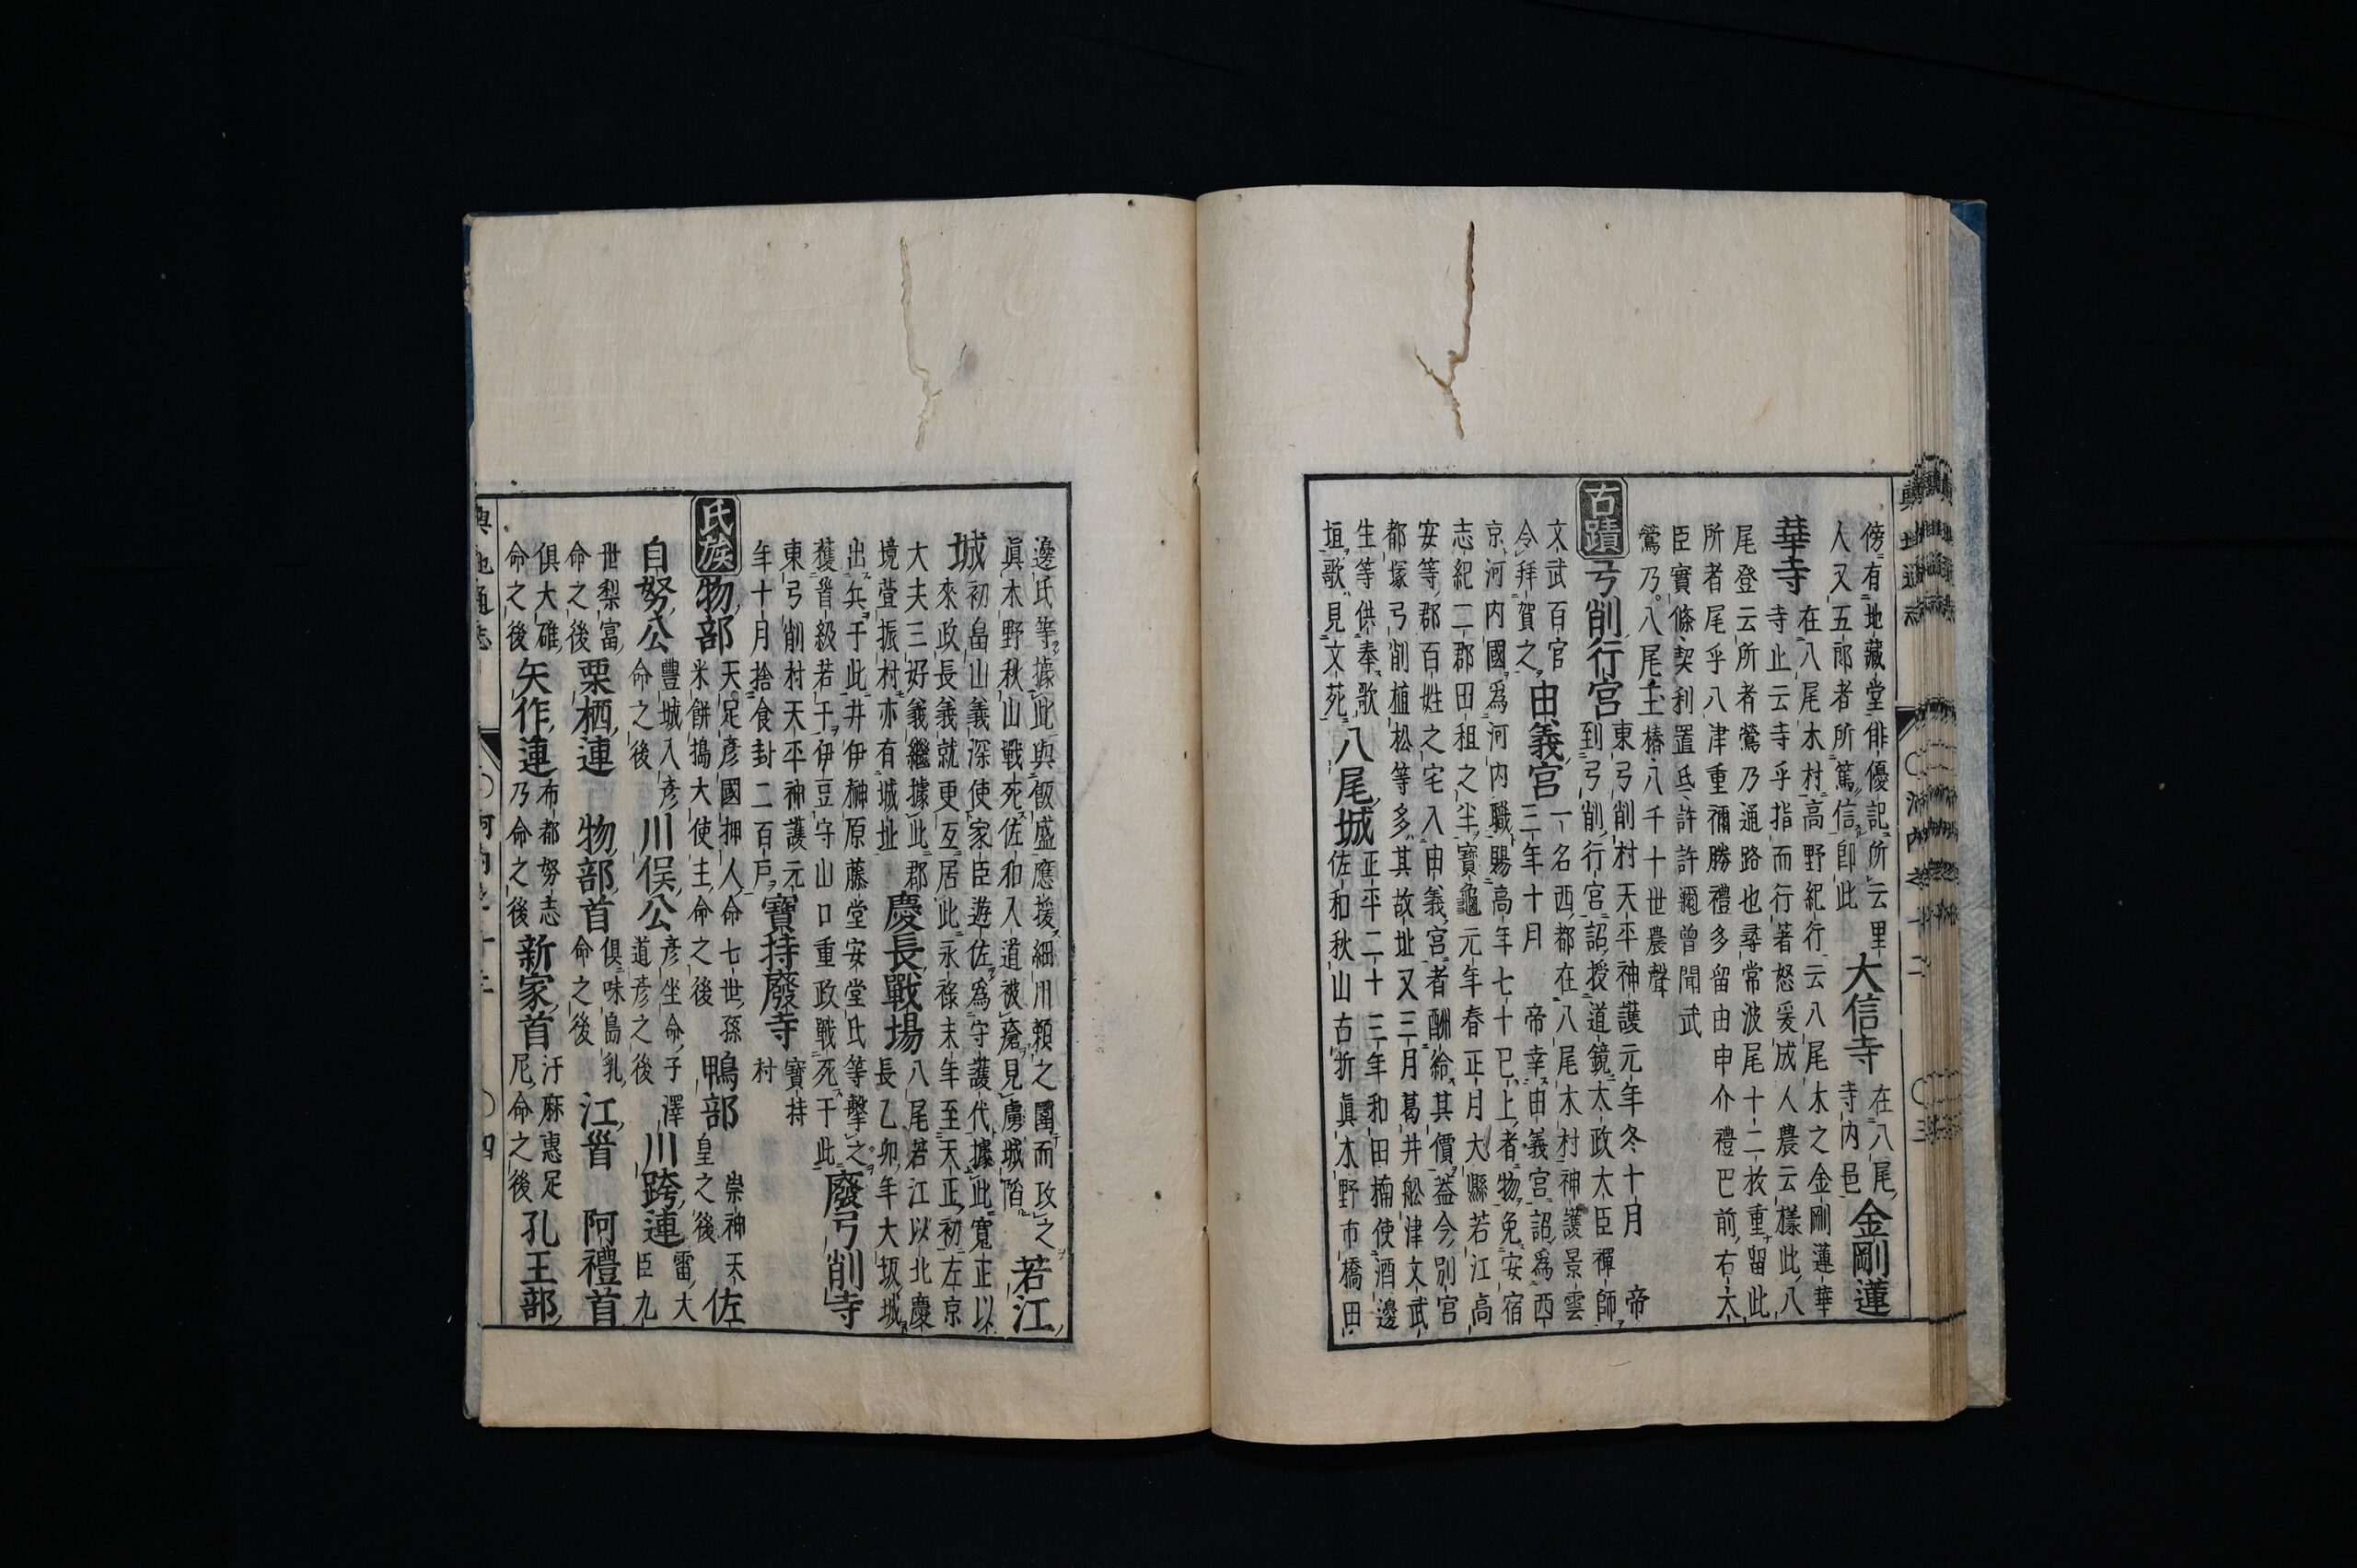 輿地通志 〇河内之十二 〇三
傍有地藏堂俳優記所云里
人又五郎者所篤信卽此
大信寺
在八尾
寺内邑
金剛蓮
華寺
在八尾木村高野紀行云八尾木之金剛蓮華
寺止云寺乎指而行著怒爰成人農云樣此八
尾登云所者鶯乃通路也尋常波尾十二枚重留此
所者尾乎八津重禰勝禮多留由申介禮巴前右大
臣實條契利置氐許許邇曾聞武
鶯乃八尾玉椿八千十世農聲
古蹟
弓削行宮
東弓削村天平神護元年冬十月 帝
到弓削行宮詔授道鏡太政大臣禪師
文武百官
令拜賀之
由義宮
一名西都在八尾木村神護景雲
三年十月 帝幸由義宮詔爲西
京河内國爲河内職賜高年七十已上者物免安宿
志紀二郡田租之半寶龜元年春正月大縣若江高
安等郡百姓之宅入由義宮者酬給其價蓋今別宮
都塚弓削植松等多其故址又三月葛井舩津文武
生等供奉歌
垣歌見文苑
八尾城
正平二十三年和田楠使酒邊
佐和秋山古折眞木野市橋田
邊氏等據此與飯盛應援細川賴之圍而攻之
眞木野秋山戰死佐和入道被瘡見虜城陷
若江
城
初畠山義深使家臣遊佐爲守護代據此寬正以
來政長義就更互居此永祿末年至天正初左京
大夫三好義繼據此郡
境萱振村亦有城址
慶長戰場
八尾若江以北慶
長乙卯年大坂城
出兵于此井伊榊原藤堂安堂氏等擊之
獲首級若干伊豆守山口重政戰死于此
廢弓削寺
東弓削村天平神護元
年十月捨食封二百戶
寶持廢寺
寶持
村
氏族
物部
天足彦國押人命七世孫
米餅搗大使主命之後
鴨部
崇神天
皇之後
佐
自努公
豐城入彦
命之後
川俣公
彦坐命子澤
道彦之後
川跨連
雷大
臣九
世梨富
命之後
栗栖連
物部首
俱味島乳
命之後
江首
阿禮首
俱大碓
命之後
矢作連
布都努志
乃命之後
新家首
汗麻惠足
尼命之後
孔王部
輿地通志 〇河内之十二 〇四